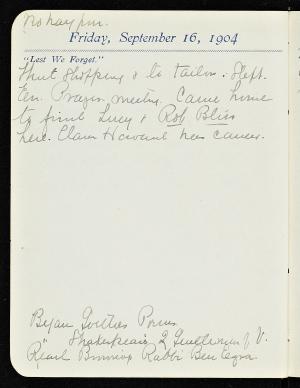 Friday, September 16, 1904
"Lest We Forget."
Shopping & to tailor. Slept.
Eve. Prayer meeting. Came home
to find Lucy & Rob Bliss
here. Clara Howard has cancer.
Began Goethe's Poems
" Shakespeare 2 Gentlemen of V.
Read Browning Rabbi Ben Ezra